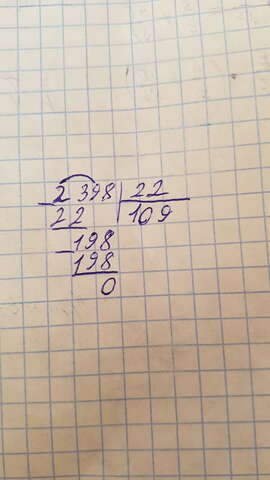 2398 22
22 109
198
198
0